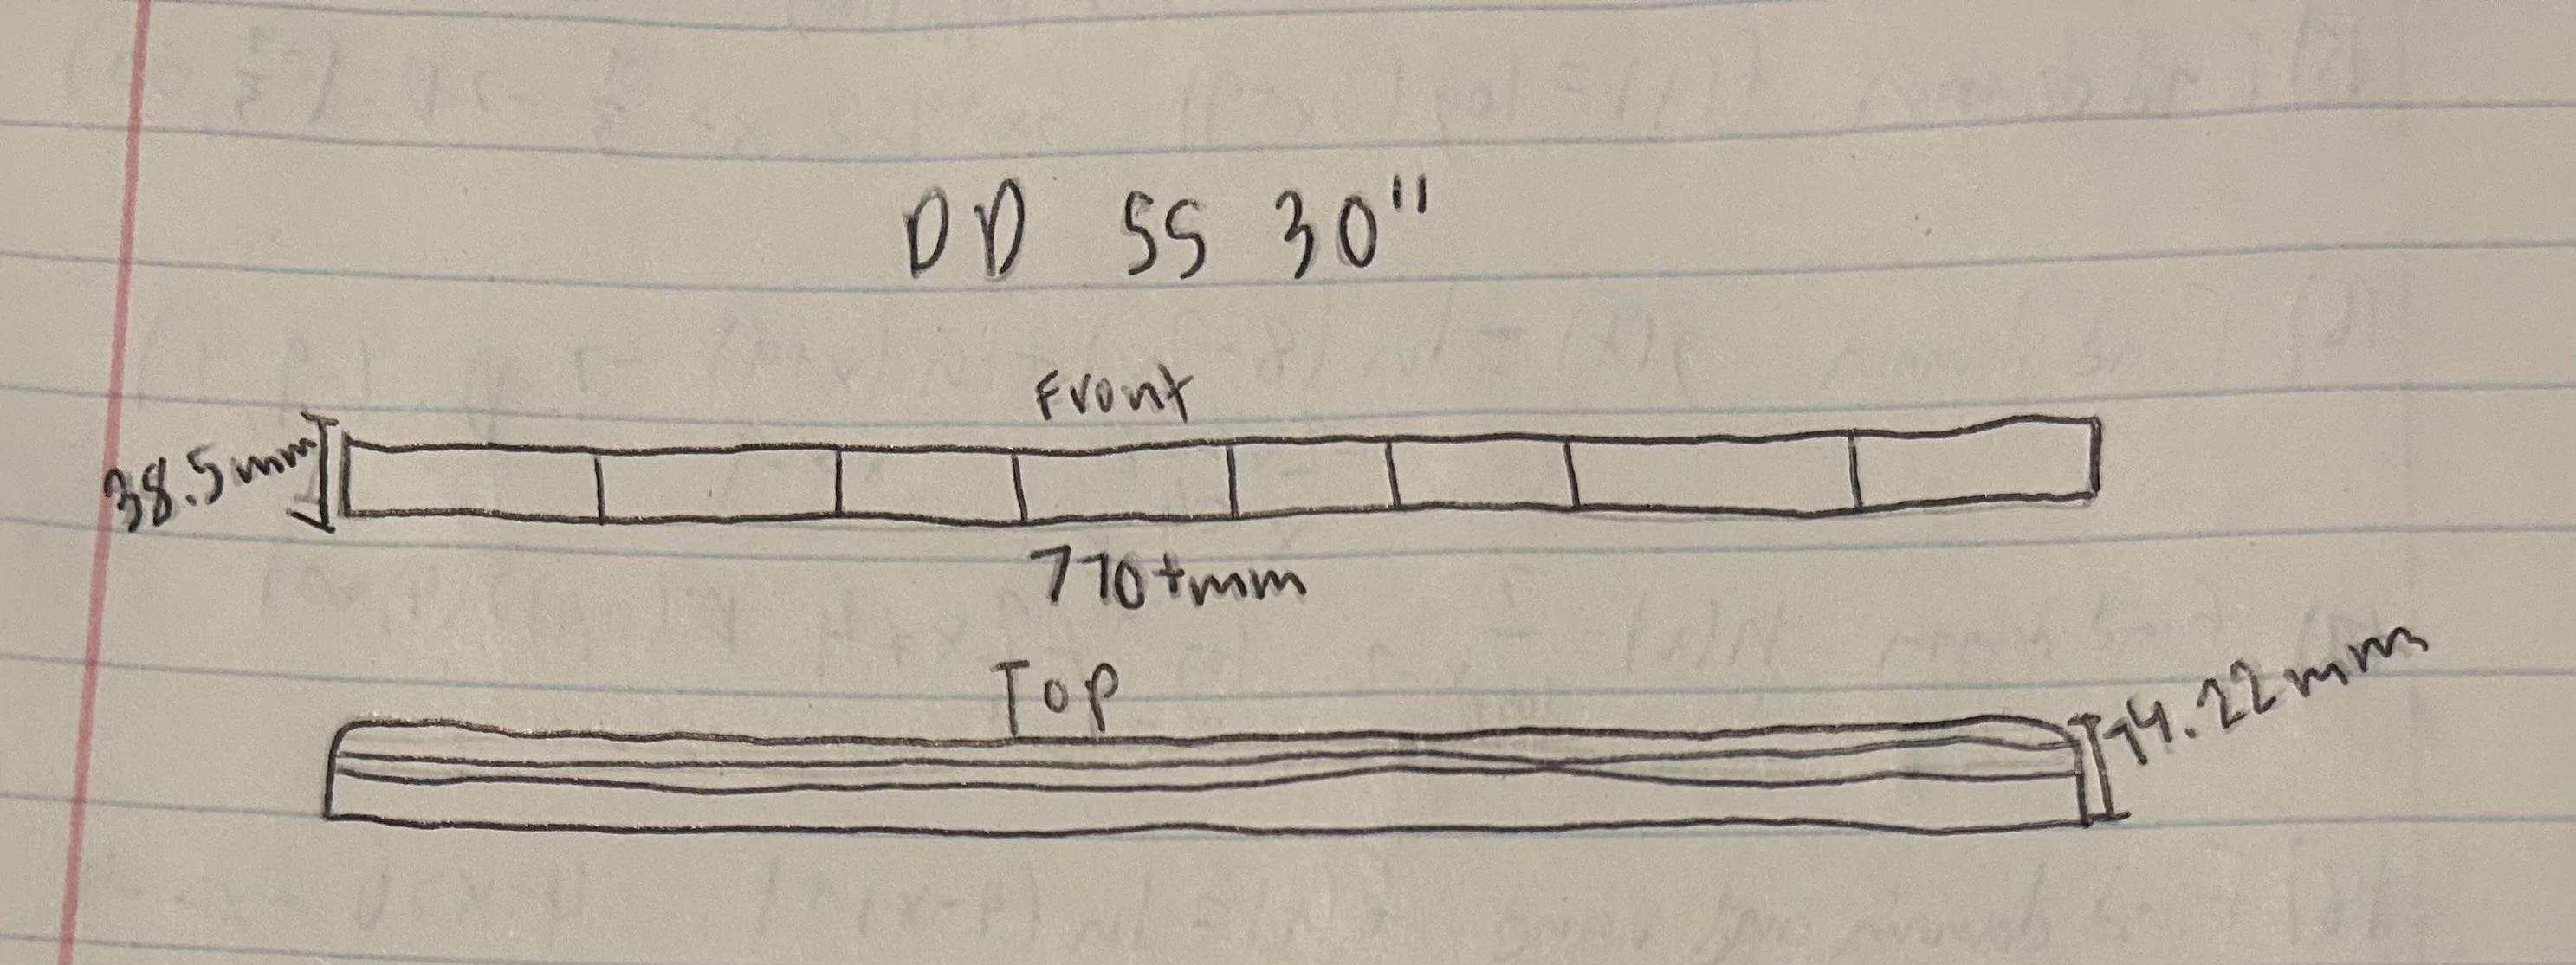 DD SS 30"
Front
38.5mm
770+mm
Top
74.22mm